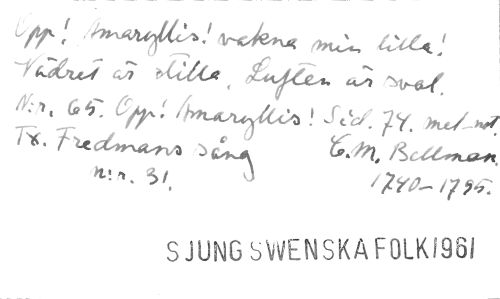 Opp! Amaryllis! vakna min lilla!
Vädret är stilla, Luften är sval.
N:r. 65. Opp! Amaryllis! Sid. 74. mel-not
Tx. Fredmans sång C.M. Bellman.
n:r. 31. 1740-1795.
SJUNG SWENSKA FOLK 1961